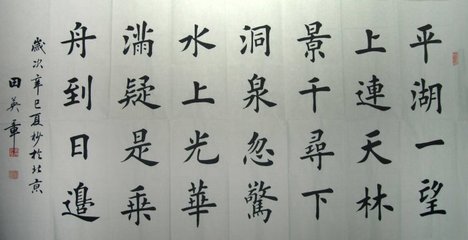 平湖一望
上連天林
景千尋下
洞泉忽驚
水上光華
滿疑是乘
舟到日邊
歲次辛巳夏杪於北京
田英章